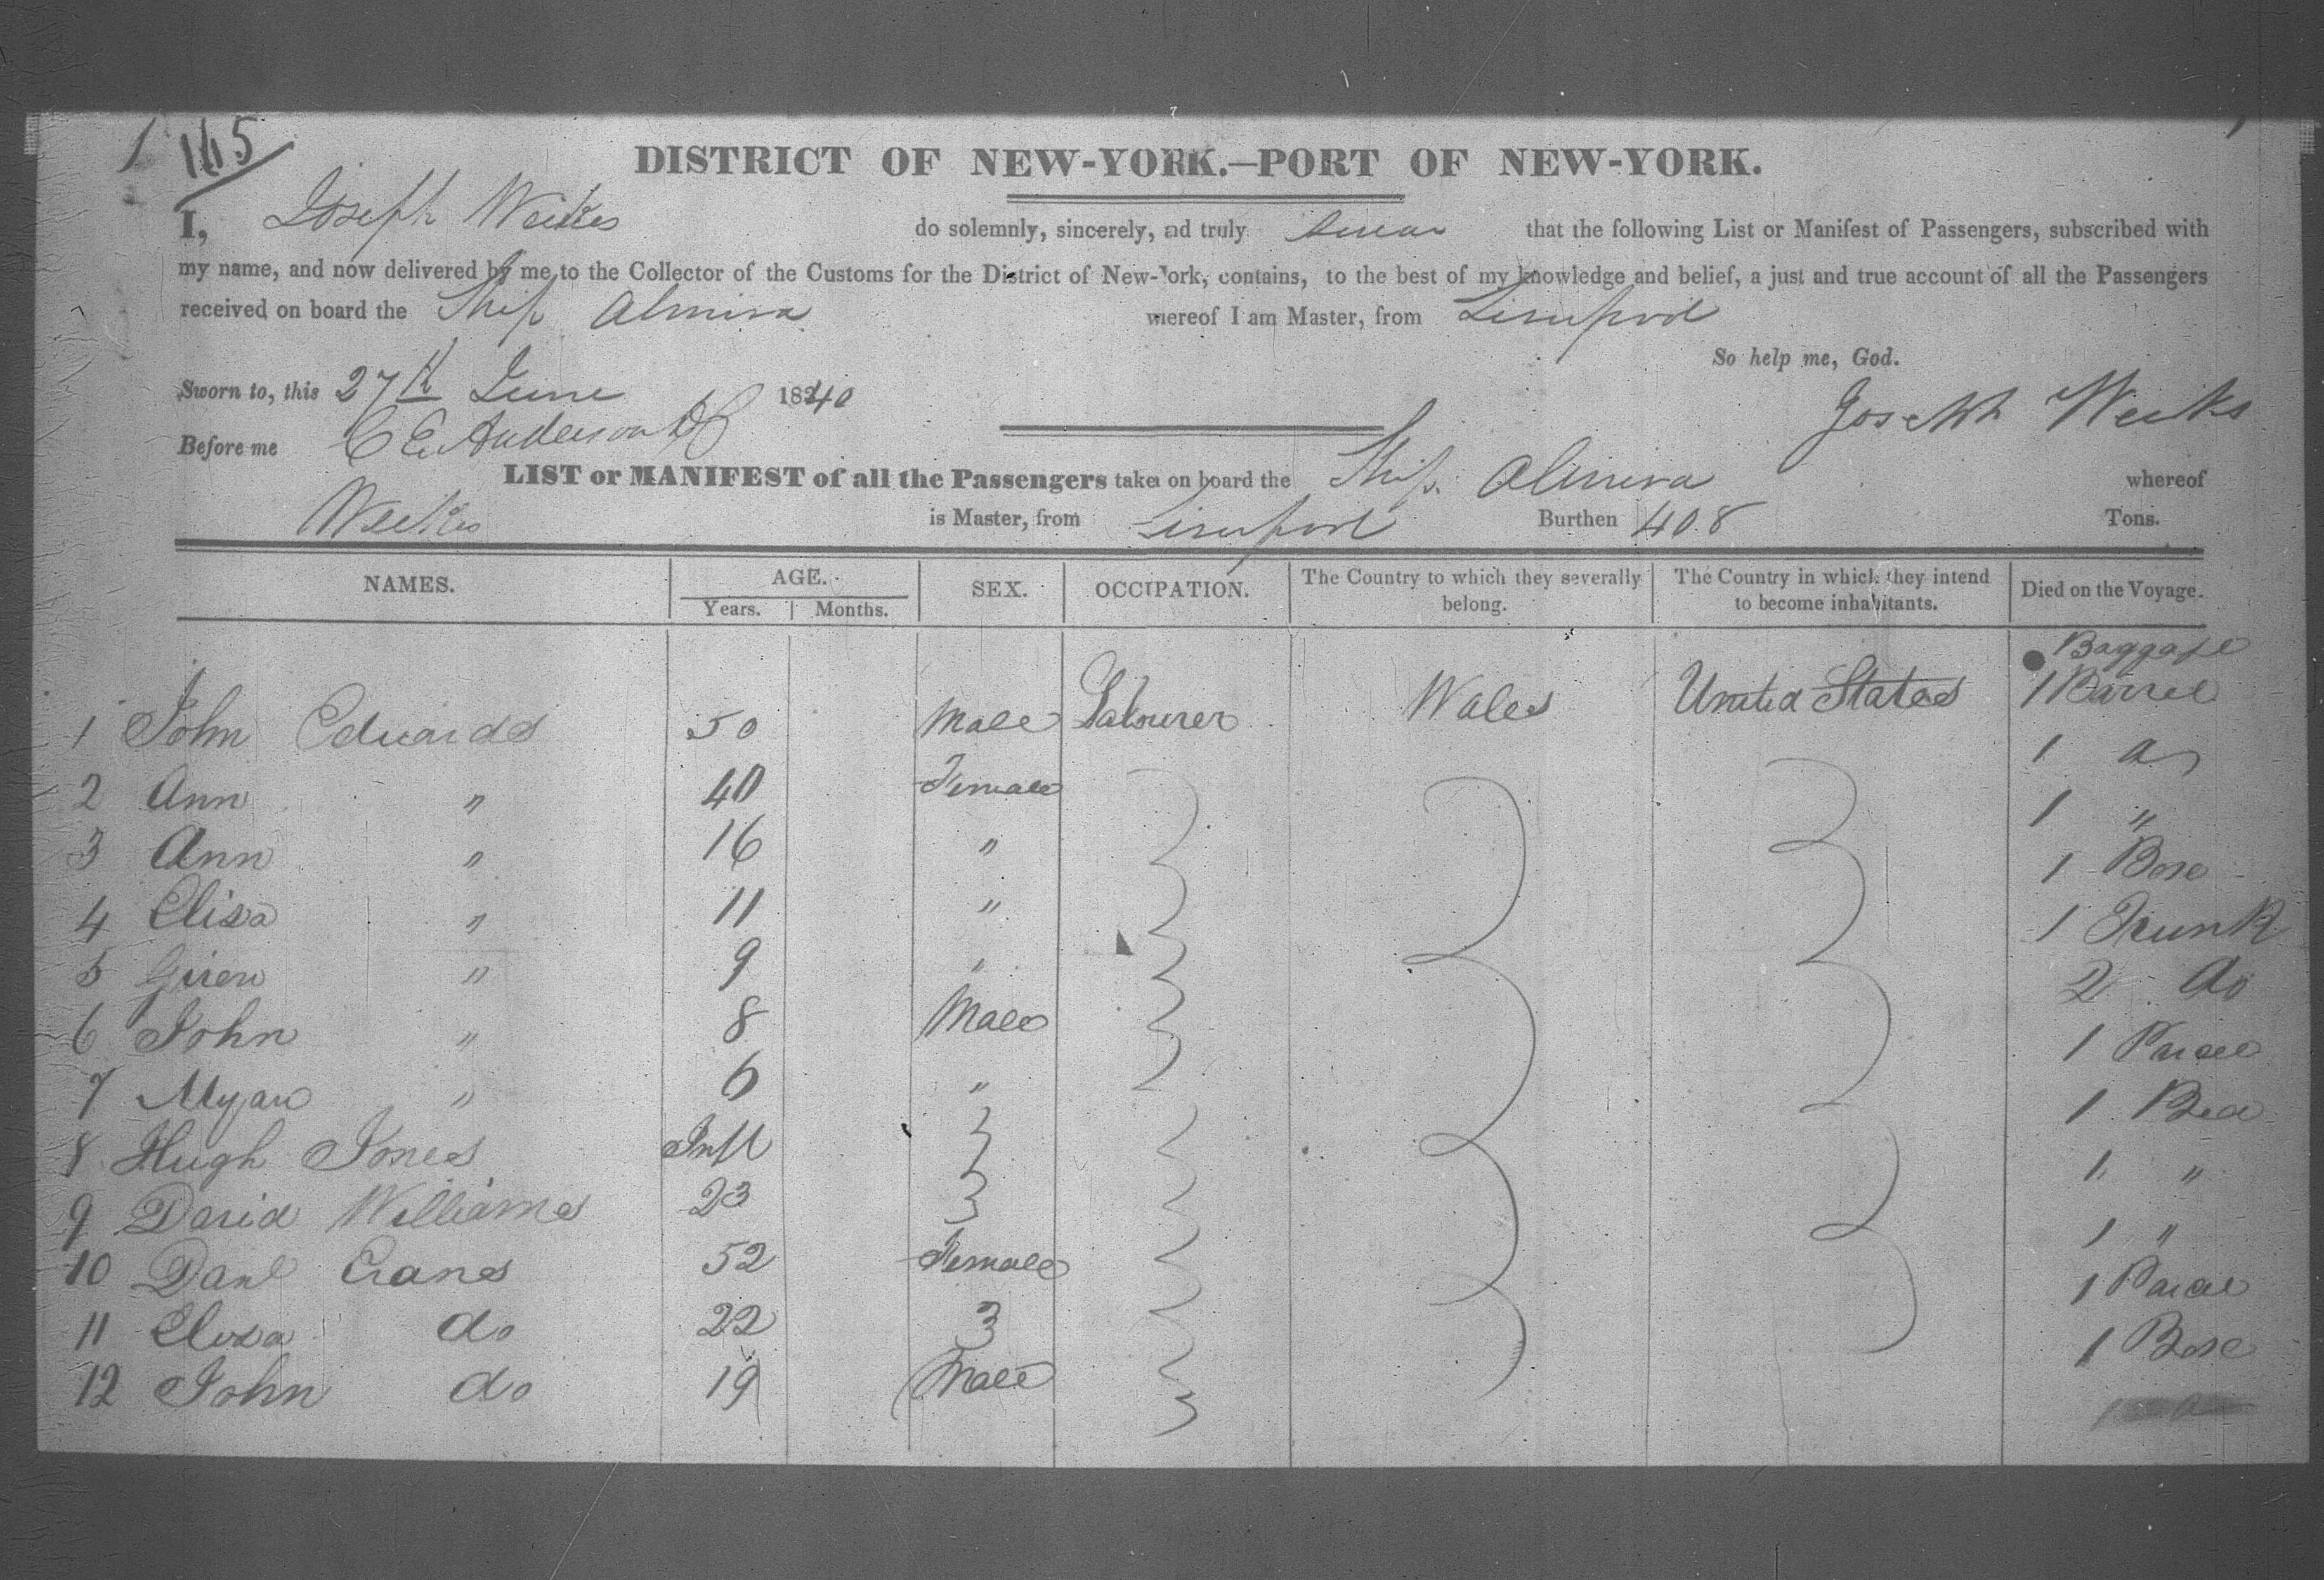 1 165
DISTRICT OF NEW-YORK.—PORT OF NEW-YORK.
I, Joseph Weekes do solemnly, sincerely, and truly swear that the following List or Manifest of Passengers, subscribed with
my name, and now delivered by me to the Collector of the Customs for the District of New-York, contains, to the best of my knowledge and belief, a just and true account of all the Passengers
received on board the Ship Almira whereof I am Master, from Liverpool
So help me, God.
Sworn to, this 27th June 1840
Joseph Weeks
Before me C E Anderson
LIST or MANIFEST of all the Passengers taken on board the Ship Almira whereof
Weekes is Master, from Liverpool Burthen 408 Tons.
NAMES. AGE. SEX. OCCUPATION. The Country to which they severally belong. The Country in which they intend to become inhabitants. Died on the Voyage.
Years. Months.
Baggage
1 John Edwards 50 Male Labourer Wales United States 1 Barrel
2 Ann " 40 Female 1 do
3 Ann " 16 " 1 "
4 Eliza " 11 " 1 Box
5 " 9 " 1 Trunk
6 John " 8 Male 2 do
7 " 6 " 1 Parcel
8 Hugh Jones Inft 1 Bed
9 David Williams 23 1 "
10 Danl Evans 52 Female 1 "
11 Eliza do 22 1 Parcel
12 John do 19 Male 1 Box